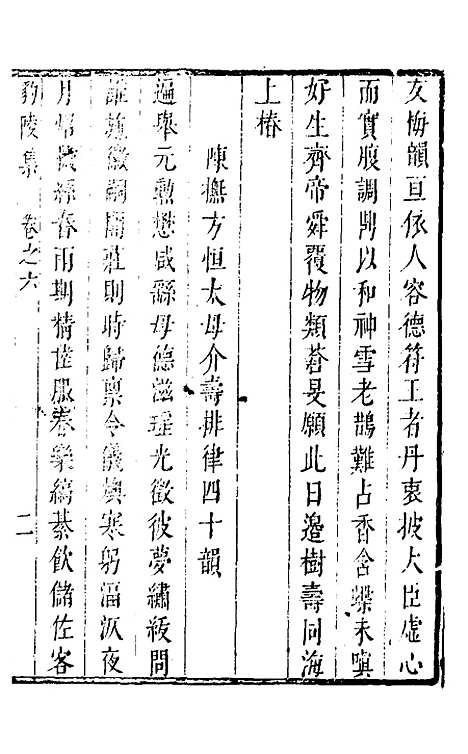 友梅韻亘依人容德符王者丹衷披大臣虛心
而實腹調鼎以和神雪老鵲難占香含蝶未嗔
好生齊帝舜覆物類蒼旻願此日邊樹壽同海
上椿
陳撫方恒太母介壽排律四十韻
遍舉元勳懋咸繇母德滋瑤光徵彼夢繡紱問
誰 徽嗣 莊則時歸稟令儀燠寒躬湢汲夜
月 春雨期精 服 樂縞綦飲儲佐客
豹陵集 卷之六 二